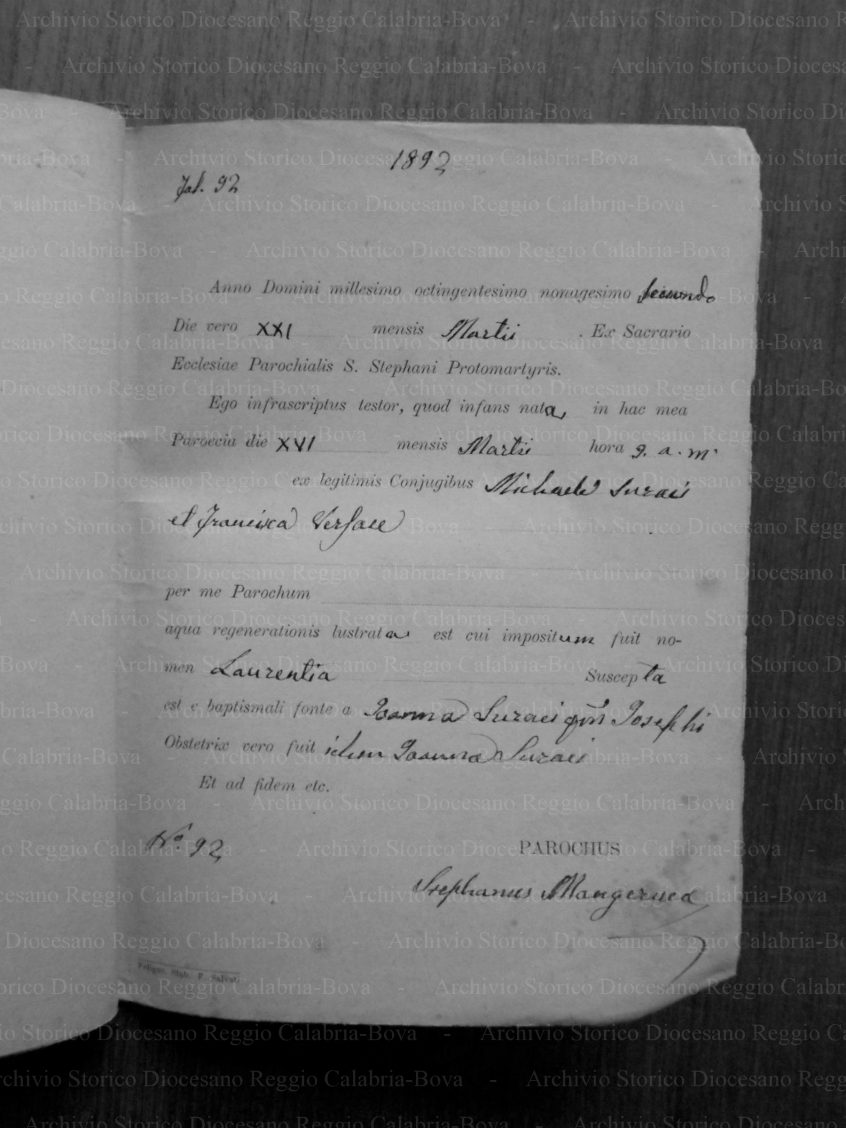 1892
Fol. 92
Anno Domini millesimo octingentesimo nonagesimo secundo
Die vero XXI mensis Martii . Ex Sacrario
Ecclesiae Parochialis S. Stephani Protomartyris.
Ego infrascriptus testor, quod infans nata, in hac mea
Paroecia die XVI mensis Martii hora 9. a. m.
ex legitimis Conjugibus Michaele Suraci
et Francisca Versace
per me Parochum
aqua regenerationis lustrata est cui impositum fuit no-
men Laurentia Suscepta
est e baptismali fonte a Joanna Suraci qm Josephi
Obstetrix vero fuit idem Joanna Suraci
Et ad fidem etc.
No. 92
PAROCHUS
Stephanus Mangeruca
Archivio Storico Diocesano Reggio Calabria-Bova